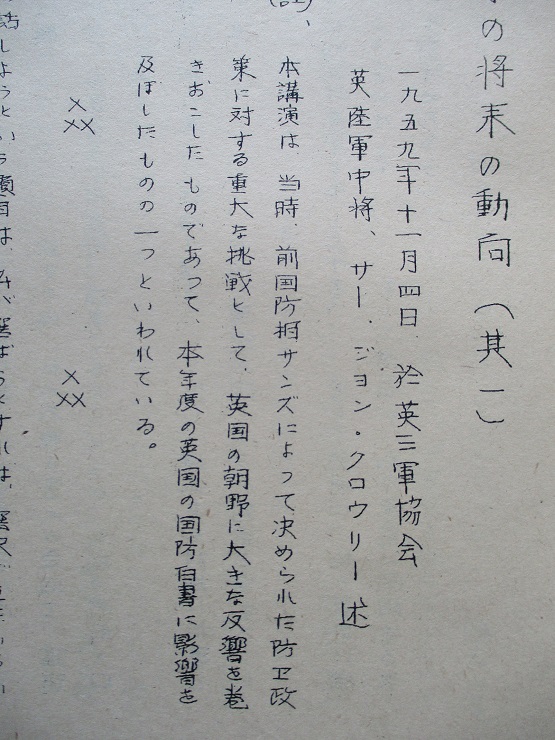 の将来の動向(其一)
一九五九年十一月四日 於英三軍協会
英陸軍中将、サー・ジョン・クロウリー述
(註)、
本講演は、当時、前国防相サンズによって決められた防卫政
策に対する重大な挑戦として、英国の朝野に大きな反響を巻
きおこしたものであって、本年度の英国の国防白書に影響を
及ぼしたものの一つといわれている。
× ××
× ××